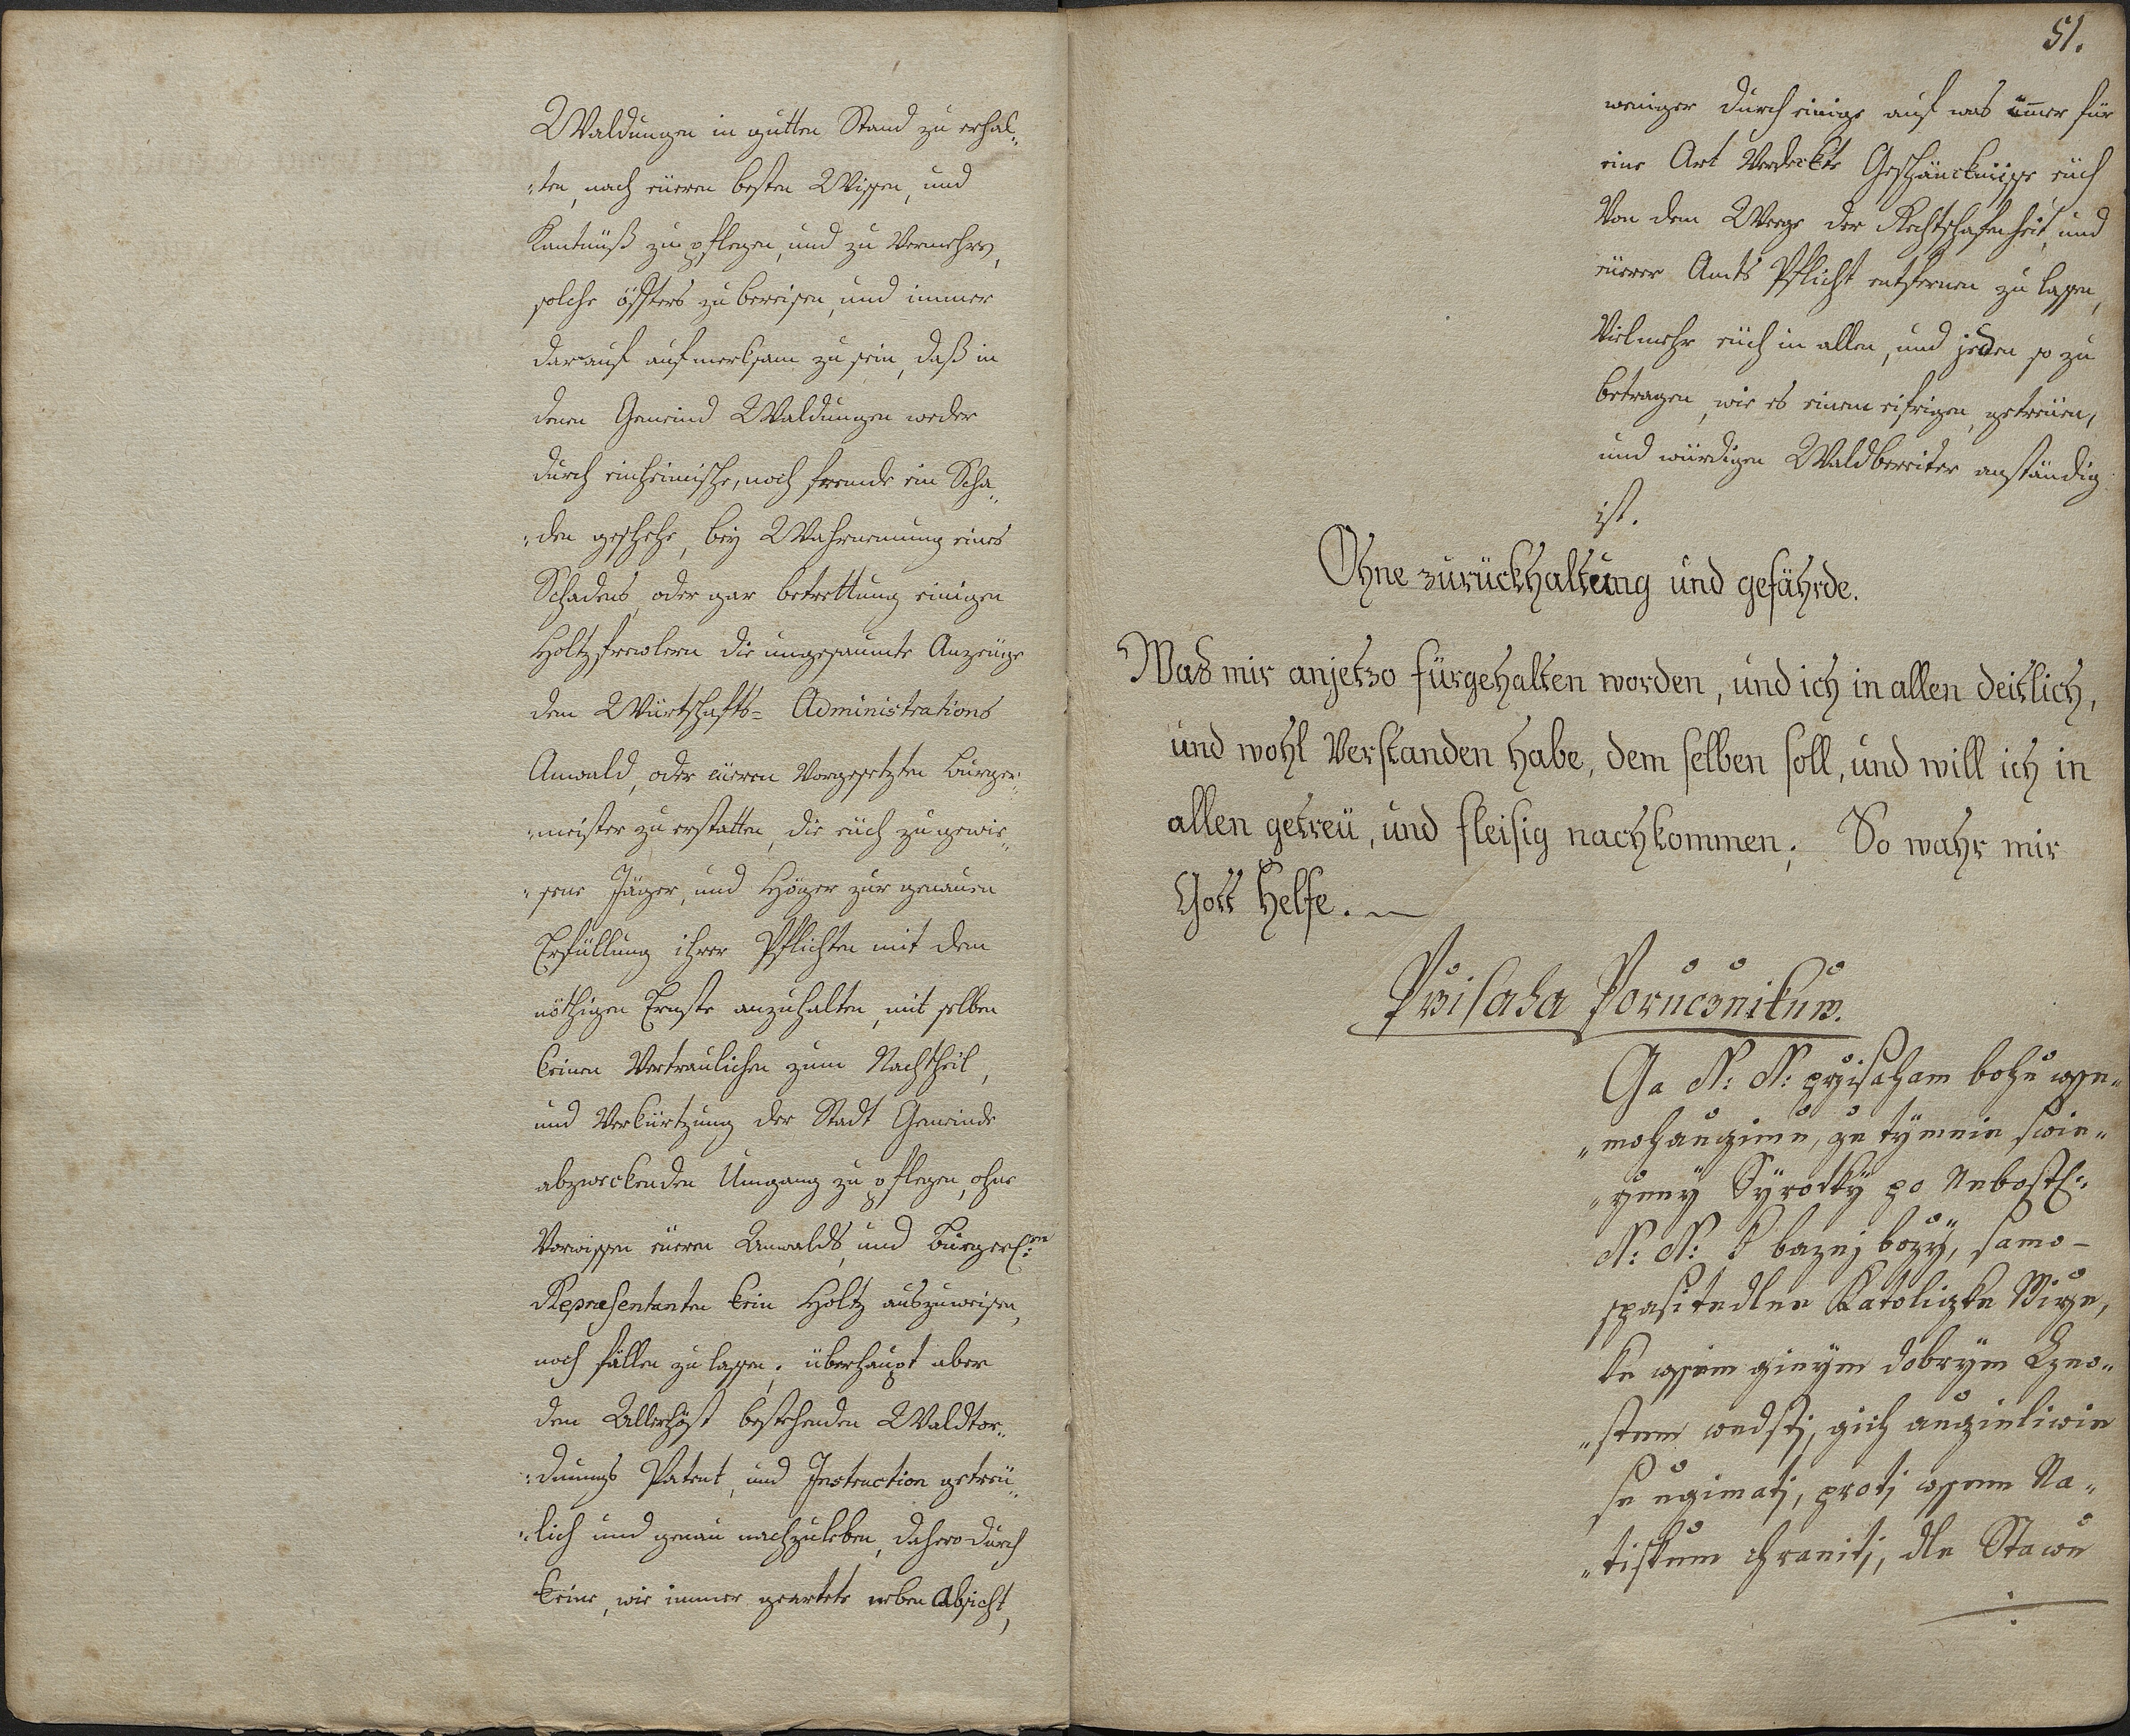 Waldungen in gutten Stand zu erhal„
„ten, nach eüeren besten Wissen, und
Kantnüß zu pflegen, und zu Vermehren,
solche öffters zu bereisen, und immer
darauf aufmerksam zu sein, daß in
denen Gemeind Waldungen weder
durch einheimische, noch fremde ein Scha„
„den geschehe, beÿ Wahrnemung eines
Schadens, oder gar betrettung einigen
Holtzfrevlern die ungesaumte Anzeüge
dem Würtschafts= Administrations
Anwald, oder eüeren Vorgesetzten burger„
„meister zu erstatten, die eüch zugewie„
„sene Jäger, und Höger zur genauen
Erfüllung ihrer Pflichten mit dem
nöthigen Ernste anzuhalten, mit selben
keinen Vertraulichen zum Nachtheil,
und Verkürtzung der Stadt Gemeinde
abzweckenden Umgang zu pflegen, ohne
Vorwissen eüeren Anwalds, und Burgerl:en
Repræsentanten kein Holtz auszuweisen,
noch fällen zu lassen; überhaupt aber
dem Allerhöst bestehenden Waldtor„
„dnungs Patent, und Instruction getreü„
„lich und genau nachzuleben, dahero durch
keine, wie immer geartete neben absicht,
51.
weniger durch einige auf was im̄er für
eine Art Verdeckte Geschänckniisse eüch
Von dem Weege der Rechtschafenheit, und
eüerer Amts Pflicht entfernen zu lassen,
Vielmehr eüch in allen, und jeden so zu
betragen, wie es einem eifrigen, getreüen,
und würdigen Waldbereiter anständig
ist.
Ohne zurückhaltung und gefährde.
Was mir anjetzo fürgehalten worden, und ich in allen deitlich,
und wohl Verstanden habe, dem selben soll, und will ich in
allen getreü, und fleisig nachkommen; So wahr mir
Gott Helfe.
Przisaha Porucznikuw.
Ga N: N: przisaham bohu wsse„
„mohauzimu, ze tÿmnie swie„
„rzenÿ Syrotkÿ po Nebosstl:
N: N: k bazni bozÿ, samo-
spasitedlne Katolizke Wirze,
ke wssem ginÿm dobrÿm Czno„
„stem wedstj, gich auzinliwie
se ugimatj, protj wssem Na„
„tiskum chranitj, dle Stawu